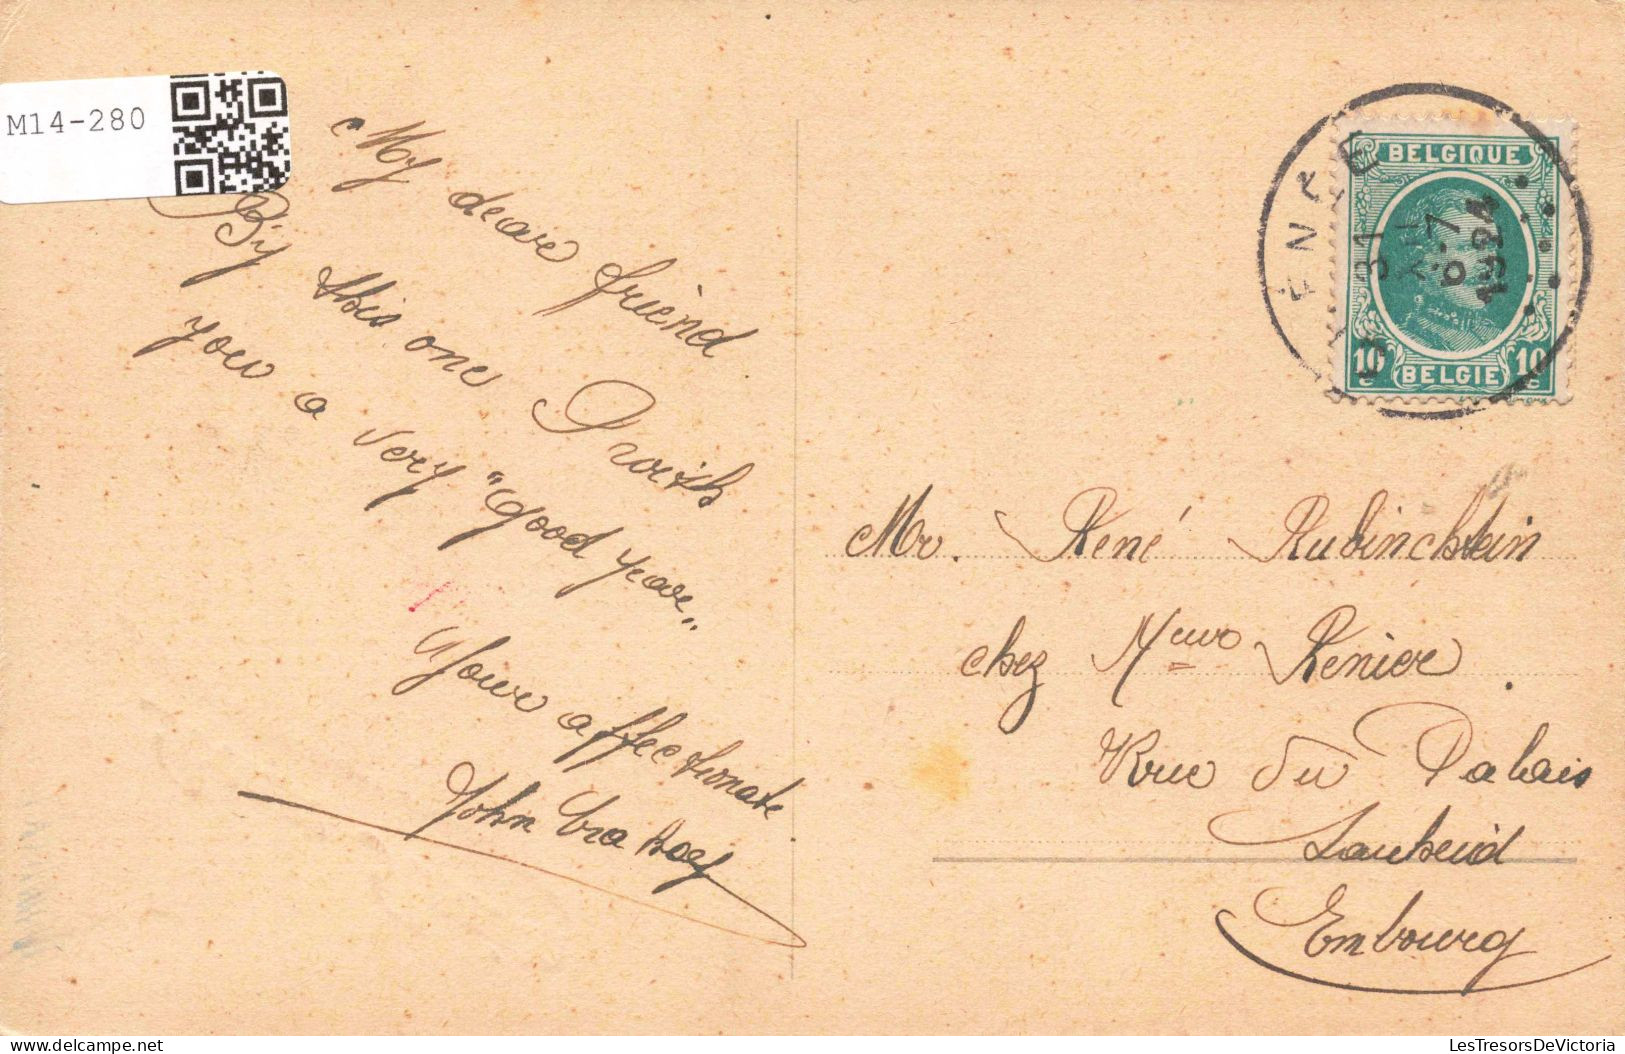 M14-280
My dear friend
By this one I wish
you a very "good year„
Your affectionate
John
BELGIQUE
31
XII
6-7
1924
10 c
10 c
BELGIE
Mr. René Rubinchtein
chez Mme Renier.
Rue du Palais
Embourg
LesTresorsDeVictoria